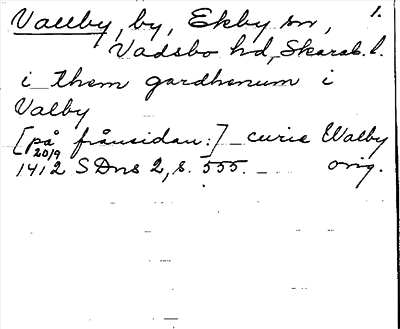 Vallby, by, Ekby sn, 1.
Vadsbo hd, Skarab. l.
i them gardhenum i
Valby
[på frånsidan:] _ curie Walby
20/9
1412 SDns 2, s. 555. _ orig.